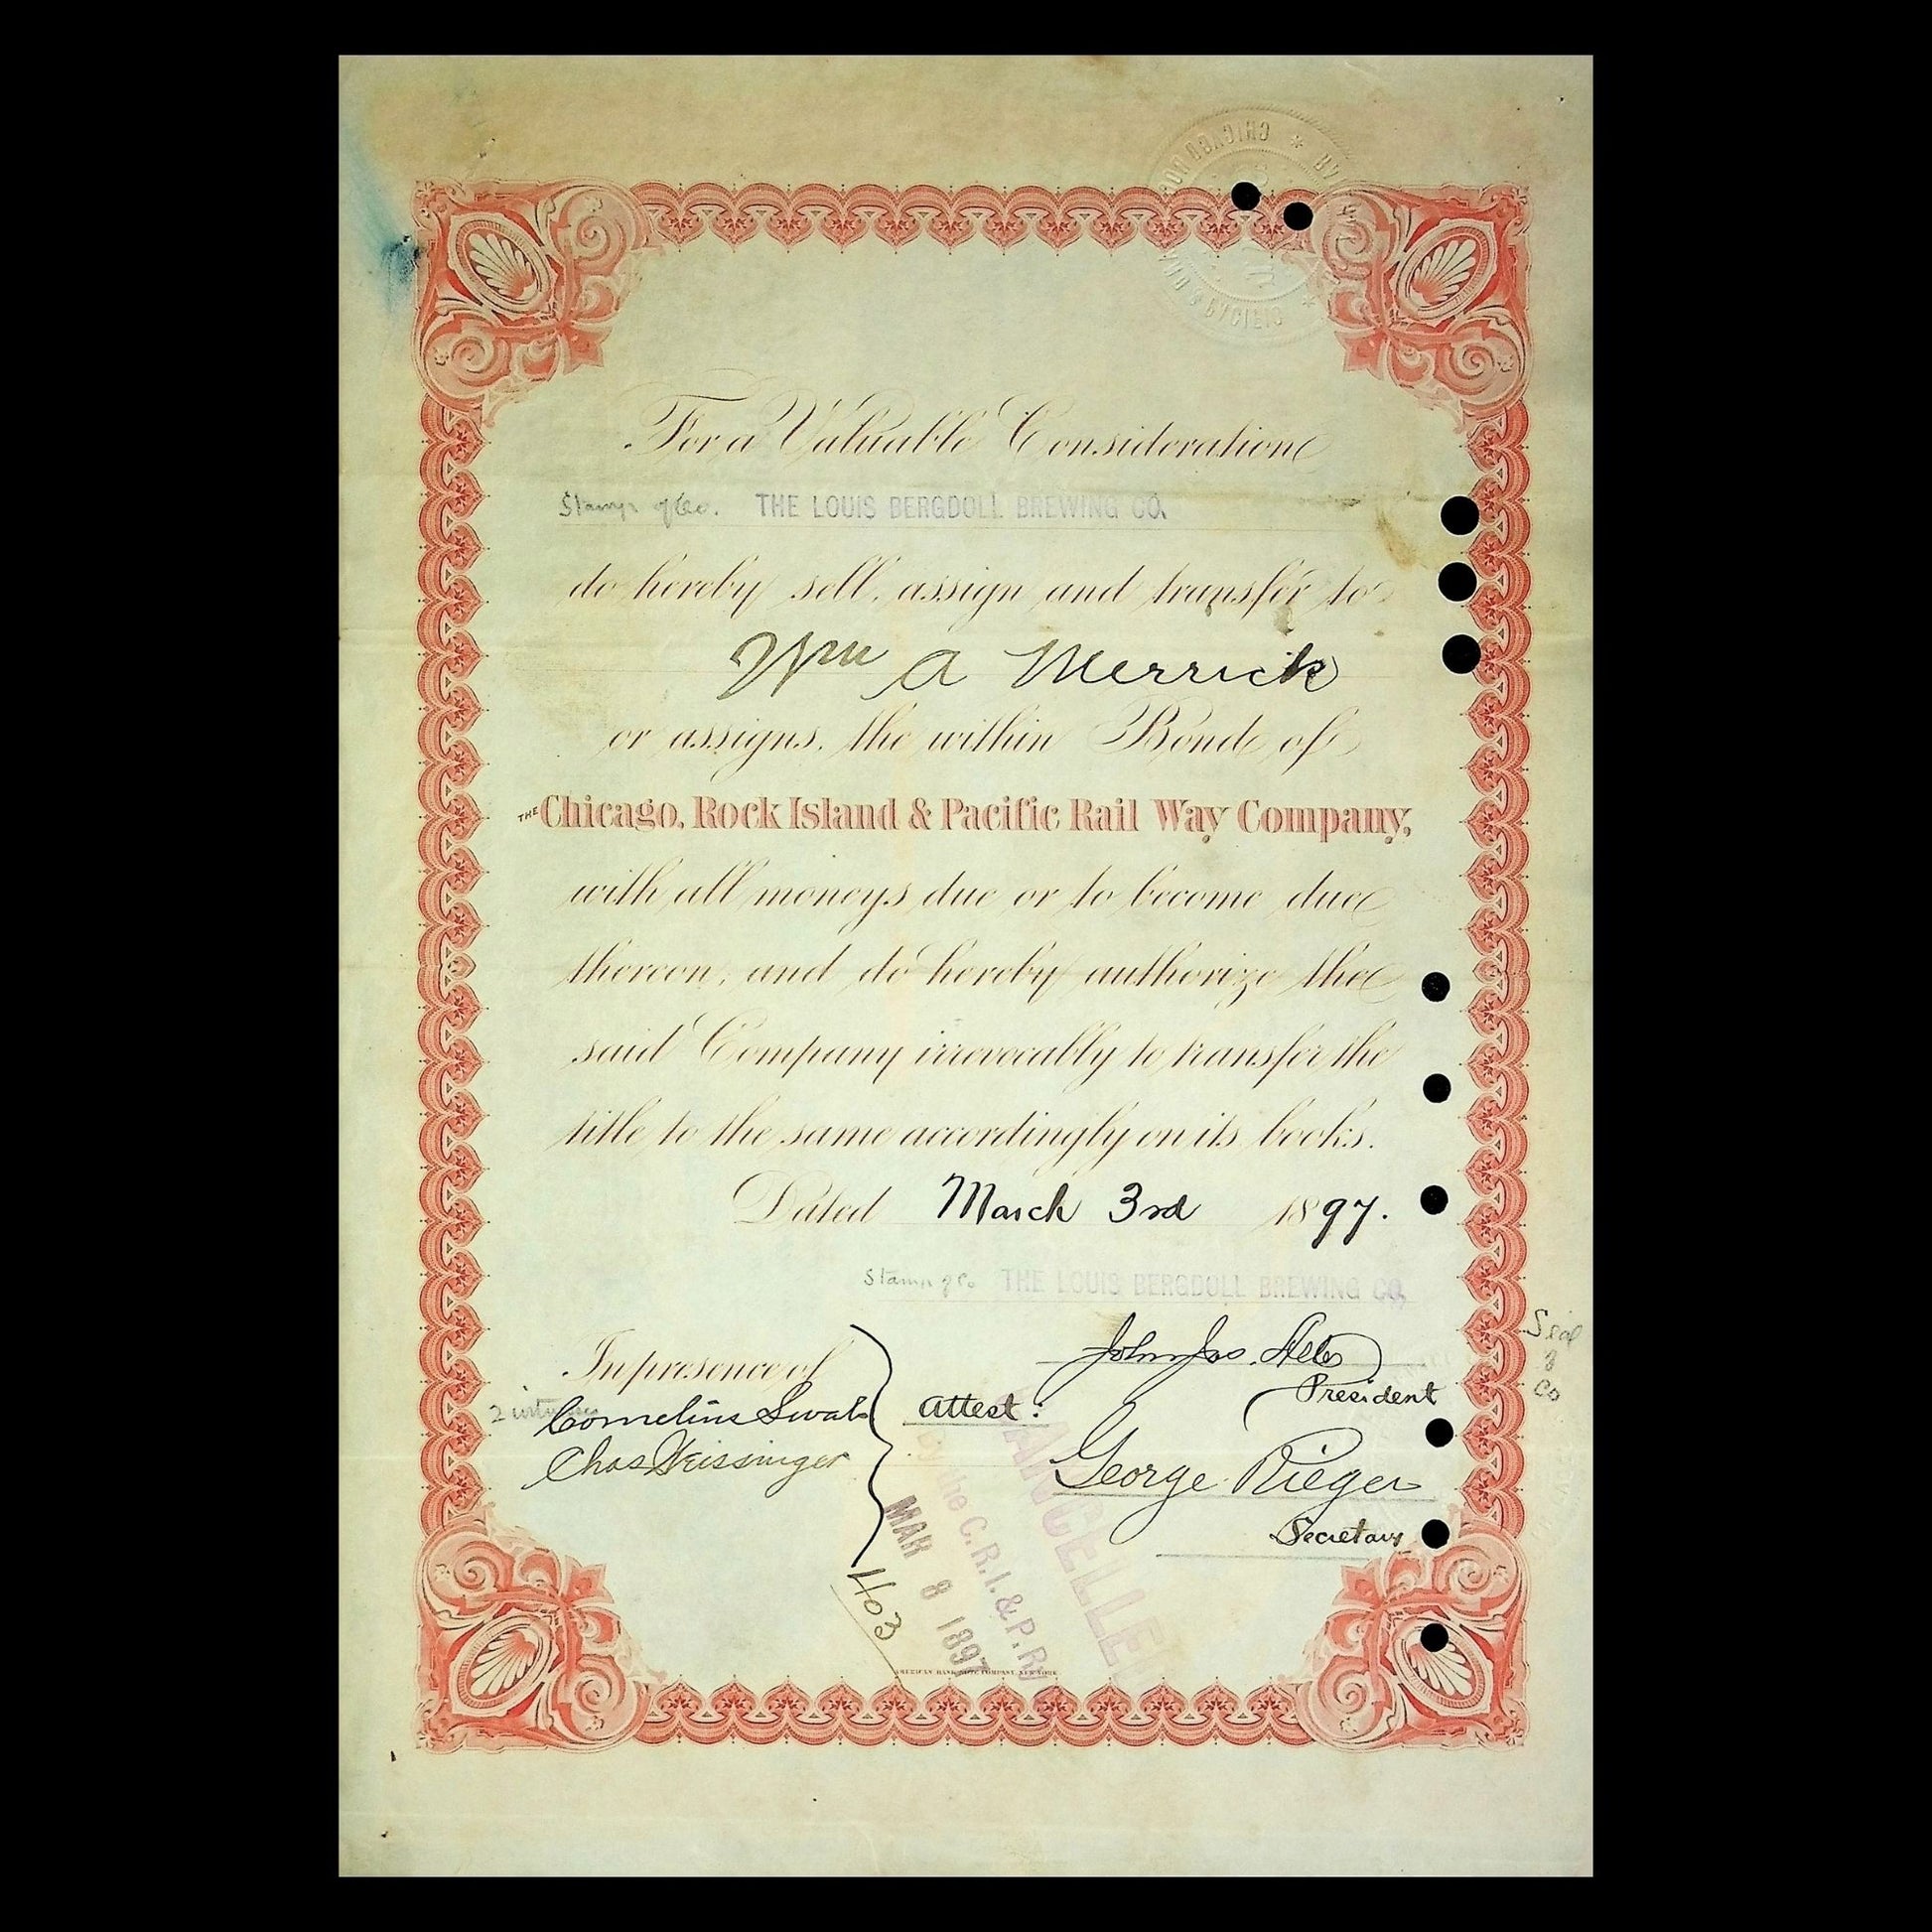 For a Valuable Consideration
Stamp of Co. THE LOUIS BERGDOLL BREWING CO.
do hereby sell, assign and transfer to
Wm A Merrick
or assigns, the within Bond of
THE Chicago, Rock Island & Pacific Rail Way Company,
with all moneys due or to become due
thereon, and do hereby authorize the
said Company irrevocably to transfer the
title to the same accordingly on its books.
Dated March 3rd 1897.
Stamp of Co THE LOUIS BERGDOLL BREWING CO.
In presence of
John Jos.
President
2
Cornelius
Attest:
Chas Weissinger
George Rieger
Secretary
Seal
Co
CANCELLED
By the C.R.I. & P. Ry
MAR 8 1897
403
AMERICAN BANK NOTE COMPANY, NEW YORK